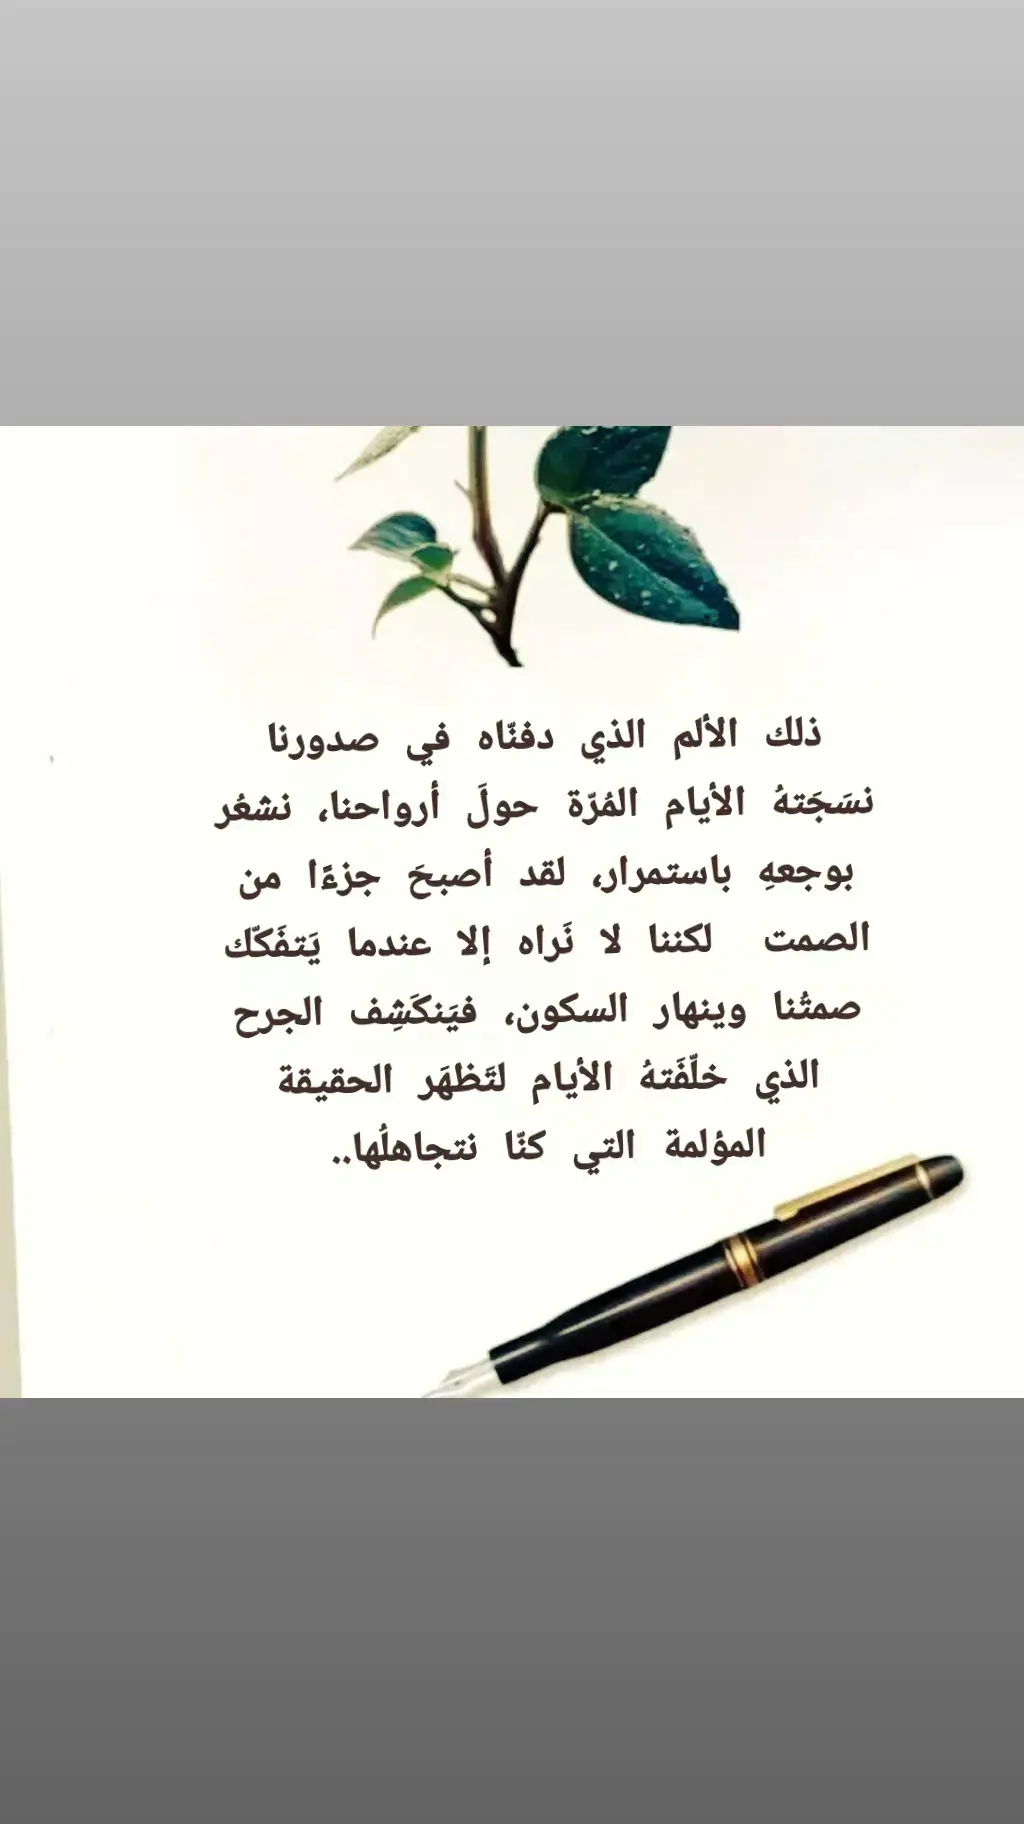 ذلك الألم الذي دفنّاه في صدورنا
نسَجَتهُ الأيام المُرّة حولَ أرواحنا، نشعُر
بوجعهِ باستمرار، لقد أصبحَ جزءًا من
الصمت لكننا لا نَراه إلا عندما يَتفَكّك
صمتُنا وينهار السكون، فيَنكَشِف الجرح
الذي خلّفَتهُ الأيام لتَظهَر الحقيقة
المؤلمة التي كنّا نتجاهلُها..